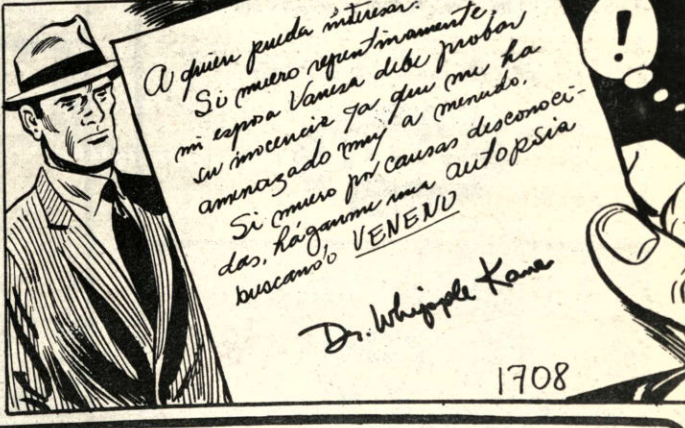 A quien pueda interesar:
Si muero repentinamente,
mi esposa Vanesa debe probar
su inocencia ya que me ha
amenazado muy a menudo.
Si muero por causas desconoci-
das, háganme una autopsia
buscando VENENO
Dr. Whipple Kane
1708
!